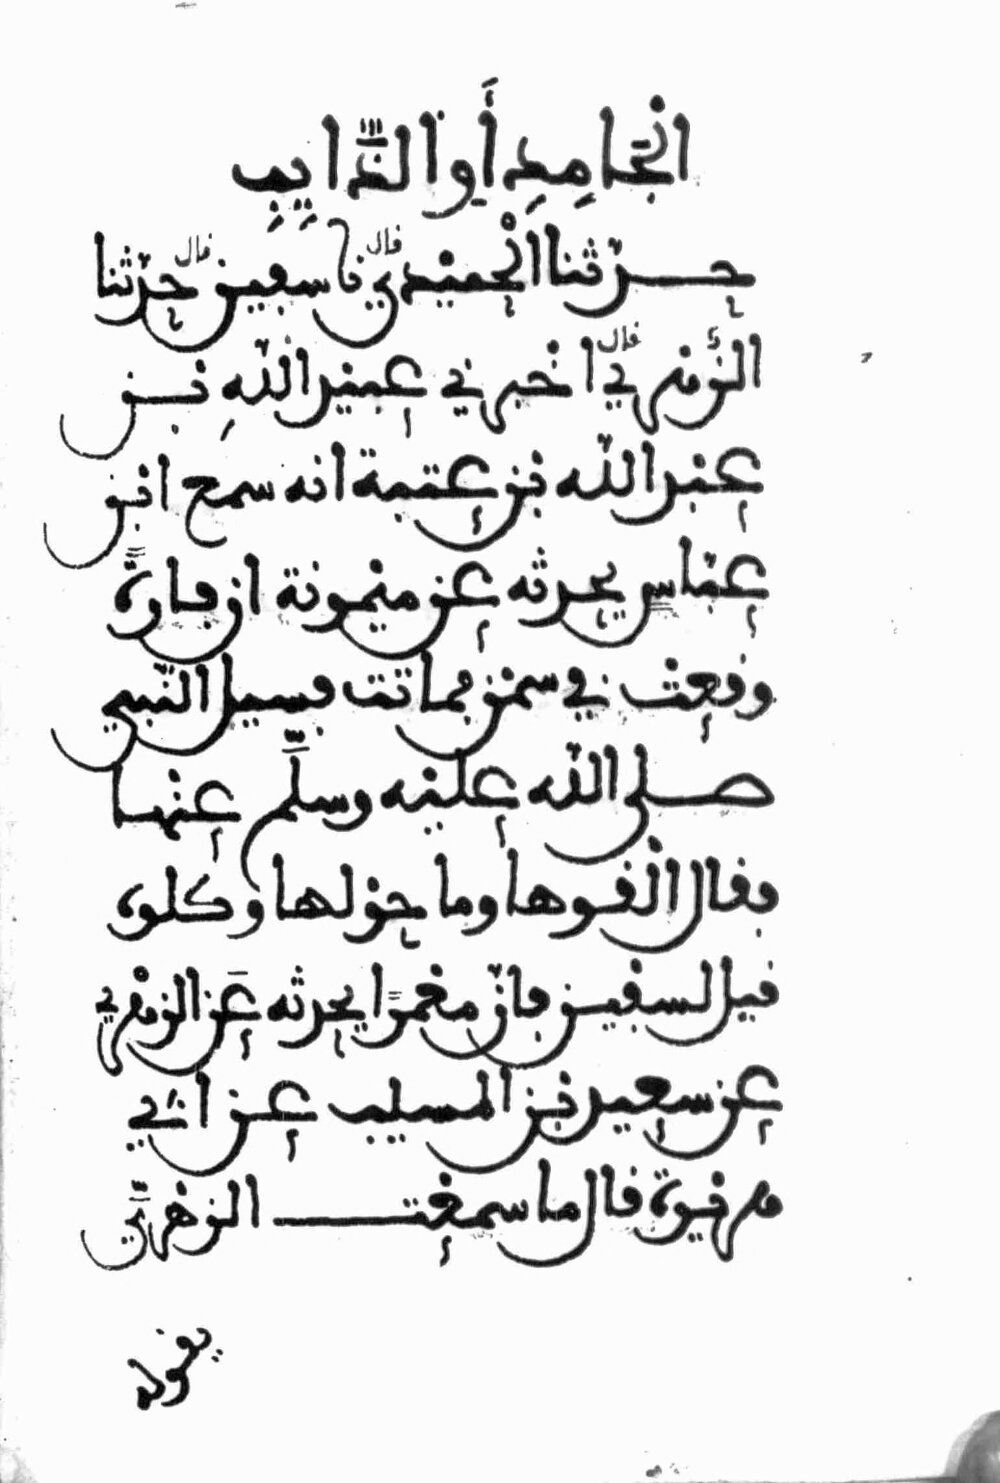 الجامِدِ أَو الذَّايِبِ
حدثنا الحميدي قال نا سفين قال حدثنا
الزُّهري قال اخبرني عبيد اللهِ بن
عبد الله بن عتبة انه سمع ابن
عباس يحدثه عن ميمونة ان فارةً
وقعت في سمن فماتت فسيل النبي
صلى الله عليه وسلَّم عنها
فقال القوها وما حولها وكلوه
قيل لسفين فان معمرًا يحدثه عَن الزهري
عن سعيد بن المسيب عن ابي
هريرة قال ما سمعت الزهريَّ
يقوله